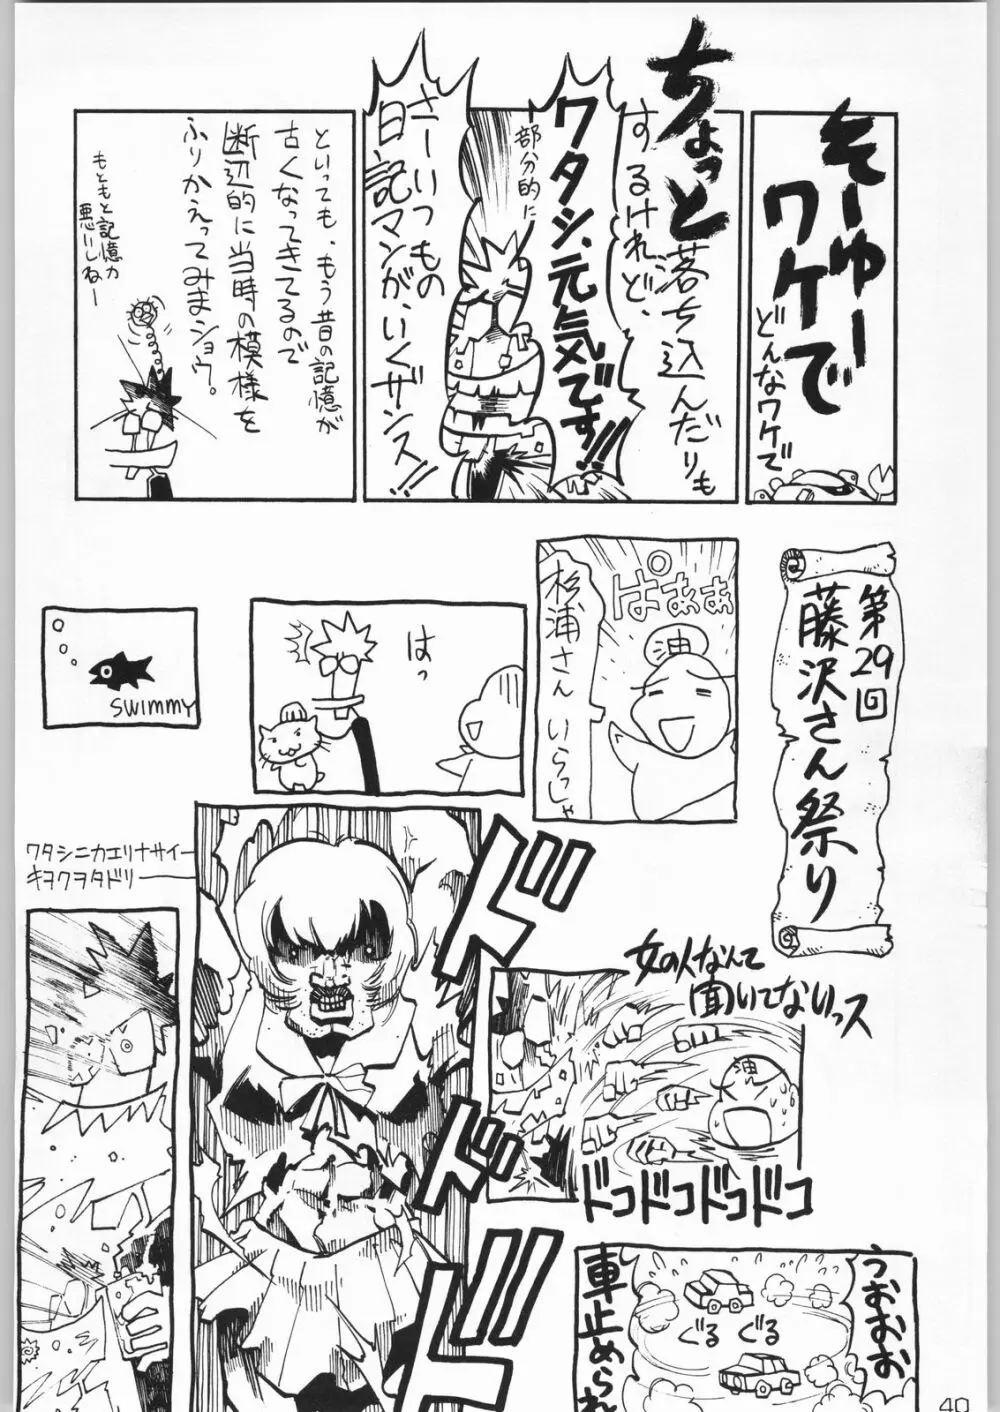 そーゆー
ワケで
どんなワケで
ちょっと
落ち込んだりも
するけれど、
ワタシ、元気です!!
部分的に
さーいつもの
日記マンガ、いくザンス!!
といっても、もう昔の記憶が
古くなってきてるので
断辺的に当時の模様を
ふりかえってみまショウ。
もともと記憶力
悪いしねー
第29回
藤沢さん祭り
ぱぁぁぁ
油
杉浦さん いらっしゃ
はっ
SWIMMY
ワタシニカエリナサイー
キヲクヲタドリ――
ドドド
女の人なんて
聞いてないっス
油
ドコドコドコドコ
うおおお
車止められ
ぐる
ぐる
40